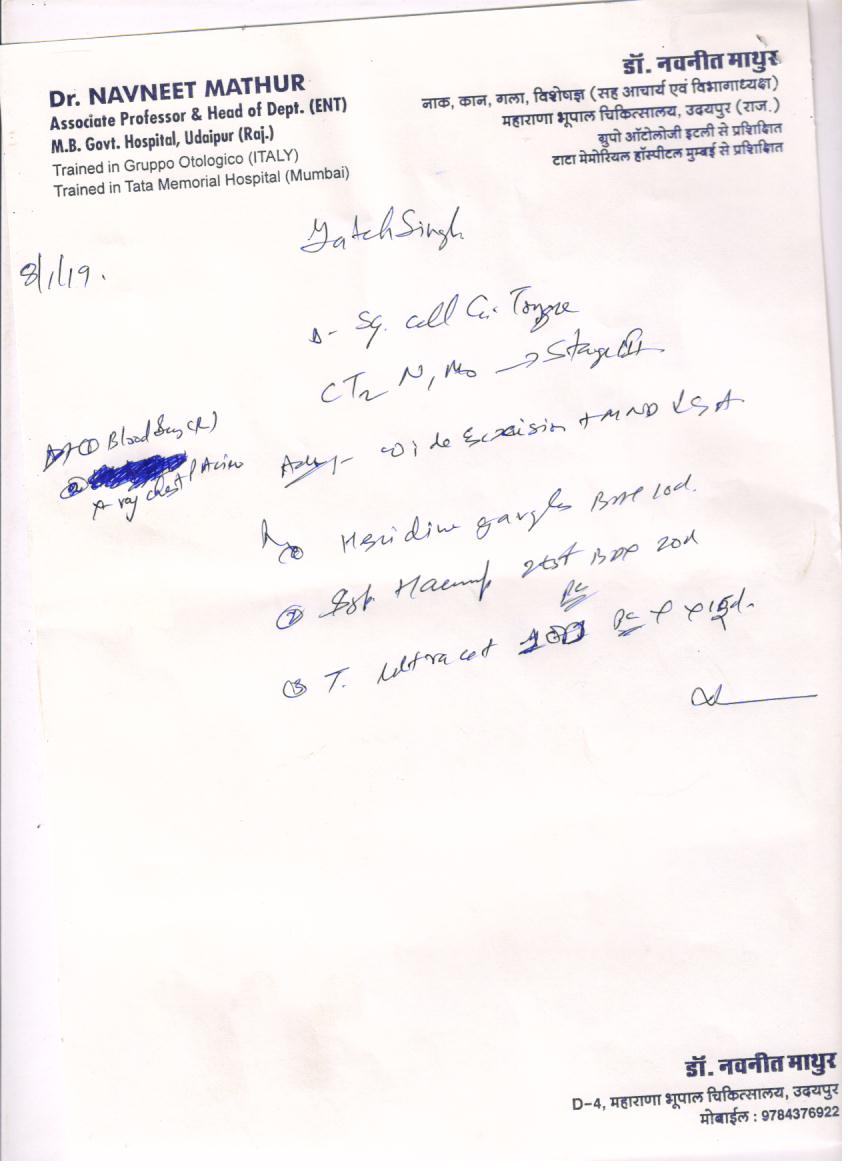 Dr. NAVNEET MATHUR
Associate Professor & Head of Dept. (ENT)
M.B. Govt. Hospital, Udaipur (Raj.)
Trained in Gruppo Otologico (ITALY)
Trained in Tata Memorial Hospital (Mumbai)
डॉ. नवनीत माथुर
नाक, कान, गला, विशेषज्ञ (सह आचार्य एवं विभागाध्यक्ष)
महाराणा भूपाल चिकित्सालय, उदयपुर (राज.)
ग्रुपो ऑटोलोजी इटली से प्रशिक्षित
टाटा मेमोरियल हॉस्पीटल मुम्बई से प्रशिक्षित
Singh
8/1/19.
Sq. cell Ca. Tongue
CT2 N1 M0 → Stage III
① Blood
②
X-ray chest PA view
Adv - Wide Excision + MND
① gargles 10d.
② 2tsf 20d
③ T. Ultracet
डॉ. नवनीत माथुर
D-4, महाराणा भूपाल चिकित्सालय, उदयपुर
मोबाईल : 9784376922